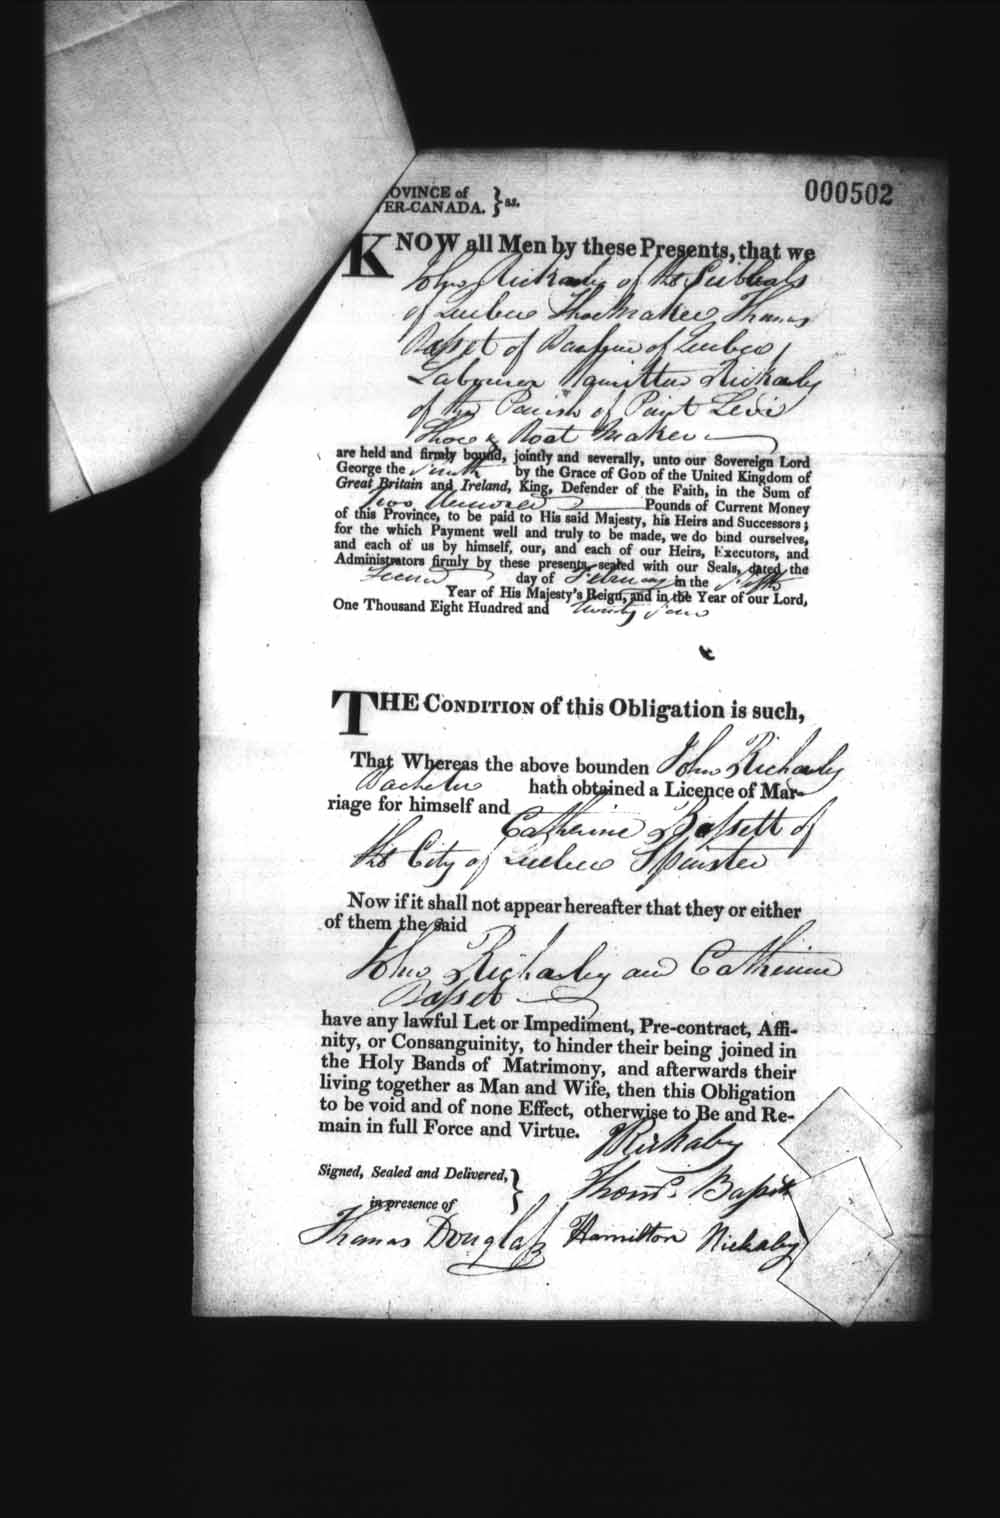 000502
OVINCE of
ER-CANADA. } ss.
KNOW all Men by these Presents, that we
John Rickaby of the Suburbs
of Quebec Shoe Maker Thomas
Basset of of Quebec
Labourer Hamilton Rickaby
of the Parish of Point Levi
Shoe & Boot Maker
are held and firmly bound, jointly and severally, unto our Sovereign Lord
George the Fourth by the Grace of GOD of the United Kingdom of
Great Britain and Ireland, King, Defender of the Faith, in the Sum of
Two Hundred Pounds of Current Money
of this Province, to be paid to His said Majesty, his Heirs and Successors;
for the which Payment well and truly to be made, we do bind ourselves,
and each of us by himself, our, and each of our Heirs, Executors, and
Administrators firmly by these presents, sealed with our Seals, dated the
Second day of February in the Fifth
Year of His Majesty's Reign, and in the Year of our Lord,
One Thousand Eight Hundred and twenty four
THE CONDITION of this Obligation is such,
That Whereas the above bounden John Rickaby
Bachelor hath obtained a Licence of Mar-
riage for himself and Catherine Bassett of
the City of Quebec Spinster
Now if it shall not appear hereafter that they or either
of them the said
John Rickaby and Catherine
Basset
have any lawful Let or Impediment, Pre-contract, Affi-
nity, or Consanguinity, to hinder their being joined in
the Holy Bands of Matrimony, and afterwards their
living together as Man and Wife, then this Obligation
to be void and of none Effect, otherwise to Be and Re-
main in full Force and Virtue.
J Rickaby
Signed, Sealed and Delivered, }
Thoms. Basset
in presence of
Thomas Douglass Hamilton Rickaby